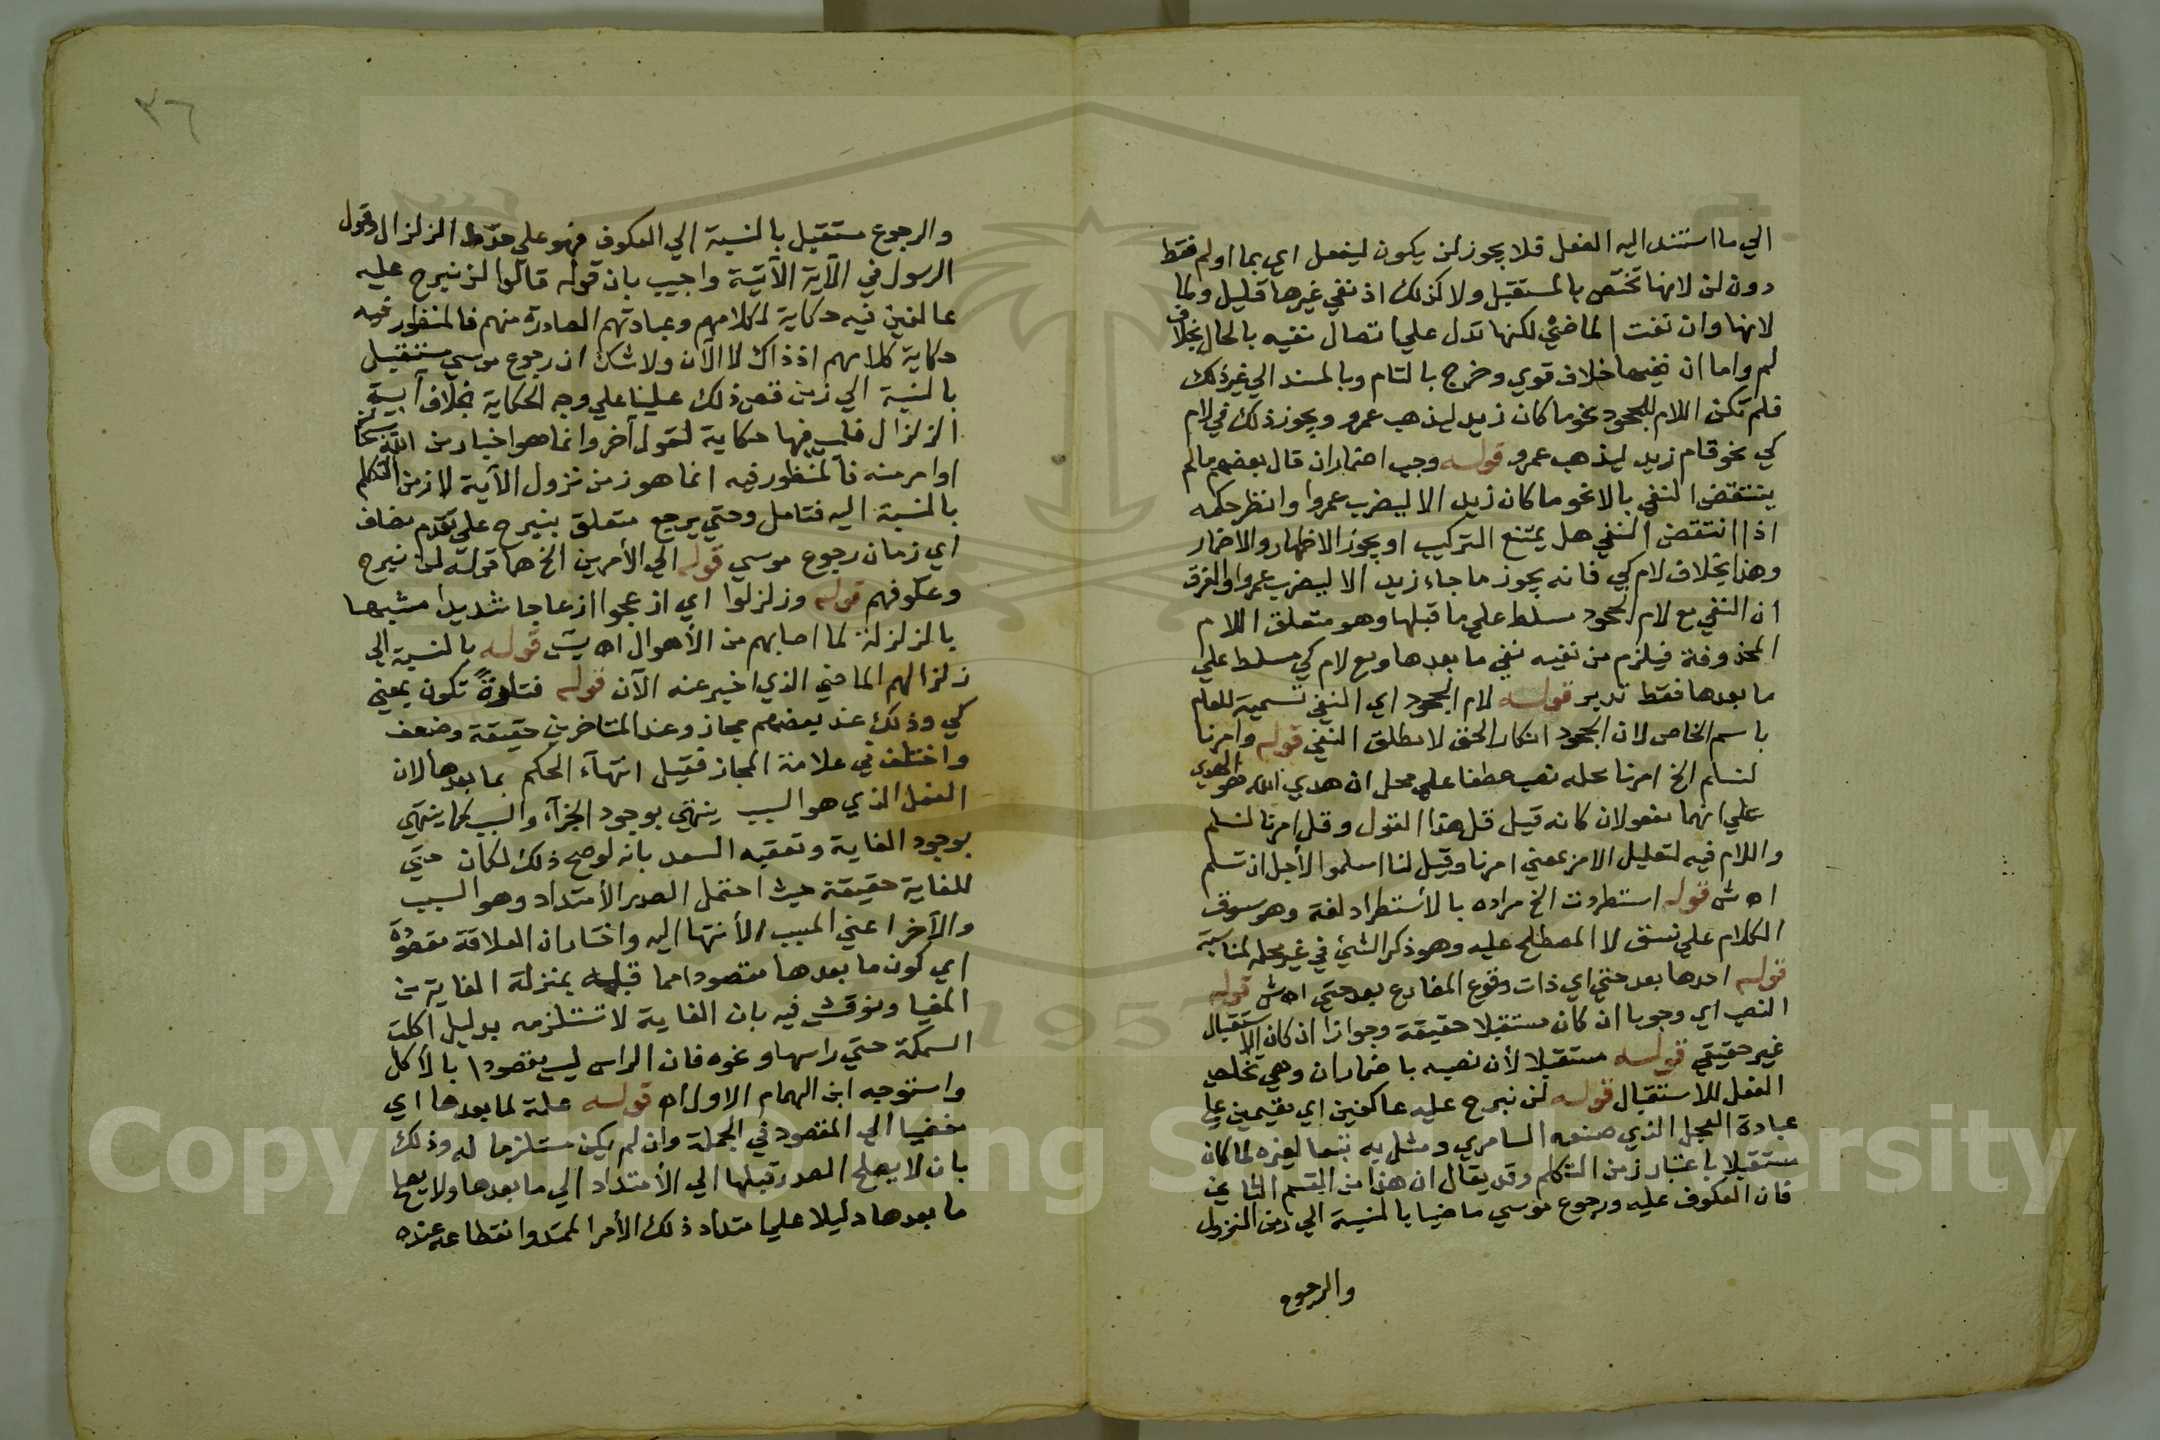 الي ما استند اليه الفعل فلا يجوز لن يكون ليفعل اي بما اولم فقط
دون لن لانها تختص بالمستقبل ولا كذلك اذ نفي غيرها قليل ولما
لانها وان نفت الماضي لكنها تدل علي اتصال نفيه بالحال بخلاف
لم واما ان ففيها خلاف قوي وخرج بالتام وبالمسند الي غير ذلك
فلم تكن اللام للجحود نحو ما كان زيد ليذهب عمرو ويجوز ذلك في لام
كي نحو قام زيد ليذهب عمرو قوله وجب اضمار ان قال بعضهم ما لم
ينتقض النفي بالا نحو ما كان زيد الا ليضرب عمروا وانظر حكمه
اذا انتقض النفي هل يمتنع التركيب او يجوز الاظهار والاضمار
وهذا بخلاف لام كي فانه يجوز ما جاء زيد الا ليضرب عمروا والفرق
ان النفي مع لام الجحود مسلط علي ما قبلها وهو متعلق اللام
المحذوفة فيلزم من نفيه نفي ما بعدها ومع لام كي مسلط علي
ما بعدها فقط تدبر قوله لام الجحود اي النفي تسمية للعام
باسم الخاص لان الجحود انكار الحق لا مطلق النفي قوله وامرنا
لنسلم الخ امرنا محله نصب عطفا علي محل ان هدي الله هو الهدي
علي انهما مفعولان كانه قيل قل هذا القول وقل امرنا لنسلم
واللام فيه لتعليل الامر بمعني امرنا وقيل لنا اسلموا لأجل ان نسلم
اه ش قوله استطردت الخ مراده بالأستطراد لغة وهو سوق
الكلام علي نسق لا المصطلح عليه وهو ذكر الشئ في غير محله لمناسبة
قوله احدها بعد حتي اي ذات وقوع المضارع بعد حتي اه ش قوله
النصب اي وجوبا ان كان مستقبلا حقيقة وجوازا ان كان الاستقبال
غير حقيقي قوله مستقبلا لأن نصبه باضمار ان وهي تخلص
الفعل للاستقبال قوله لن نبرح عليه عاكفين اي مقيمين علي
عبادة العجل الذي صنعه السامري ومثل به تبعا لغيره لما كان
مستقبلا باعتبار زمن التكلم وقد يقال ان هذا من القسم الثاني
فان العكوف عليه ورجوع موسي ماضيا بالنسبة الي زمن النزول
والرجوع
٣٦
والرجوع مستقبل بالنسبة الي العكوف فهو علي حد الزلزال وقول
الرسول في الآية الآتية واجيب بان قوله قالوا لن نبرح عليه
عاكفين فيه حكاية لكلامهم وعبادتهم الصادرة منهم فالمنظور فيه
حكاية كلامهم اذ ذاك لا الآن ولا شك ان رجوع موسي مستقبل
بالنسبة الي زمن قص ذلك علينا علي وجه الحكاية بخلاف آية
الزلزال فليس فيها حكاية لقول آخر وانما هو اخبار من الله
اوامر منه فالمنظور فيه انما هو زمن نزول الآية لا زمن التكلم
بالنسبة اليه فتامل وحتي يرجع متعلق بنبرح علي تقدم مضاف
اي زمان رجوع موسي قوله الي الأمرين الخ هما قوله لن نبرح
وعكوفهم قوله وزلزلوا اي ازعجوا ازعاجا شديدا مشبها
بالزلزلة لما اصابهم من الأهوال اه قوله بالنسبة الي
زلزالهم الماضي الذي اخبر عنه الآن قوله فتارة تكون بمعني
كي وذلك عند بعضهم مجاز وعند المتاخرين حقيقة وضعف
واختلف في علامة المجاز فقيل انتهآء الحكم بما بعدها لان
الفعل الذي هو السبب ينتهي بوجود الجزآء والسبب كما ينتهي
بوجود الغاية وتعقبه السعد بانه لو صح ذلك لكان حتي
للغاية حقيقة حيث احتمل الصدر الأمتداد وهو السبب
والآخر اعني المسبب الأنتها اليه واختار ان العلاقة مقصودة
اي كون ما بعدها مقصودا مما قبله بمنزلة الغاية من
المغيا ونوقش فيه بان الغاية لا تستلزمه بدليل اكلت
السمكة حتي راسها ونحوه فان الراس ليس مقصودا بالاكل
واستوجه ابن الهمام الاول اه قوله علة لما بعدها اي
مفضيا الي المقصود في الجملة وان لم يكن مستلزما له وذلك
بان لا يصلح الصدر قبلها الي الأمتداد الي ما بعدها ولا يصلح
ما بعدها دليلا علي امتداد ذلك الأمر الممتد وانقطاعه عنده
Copyright © King Saud University
1957